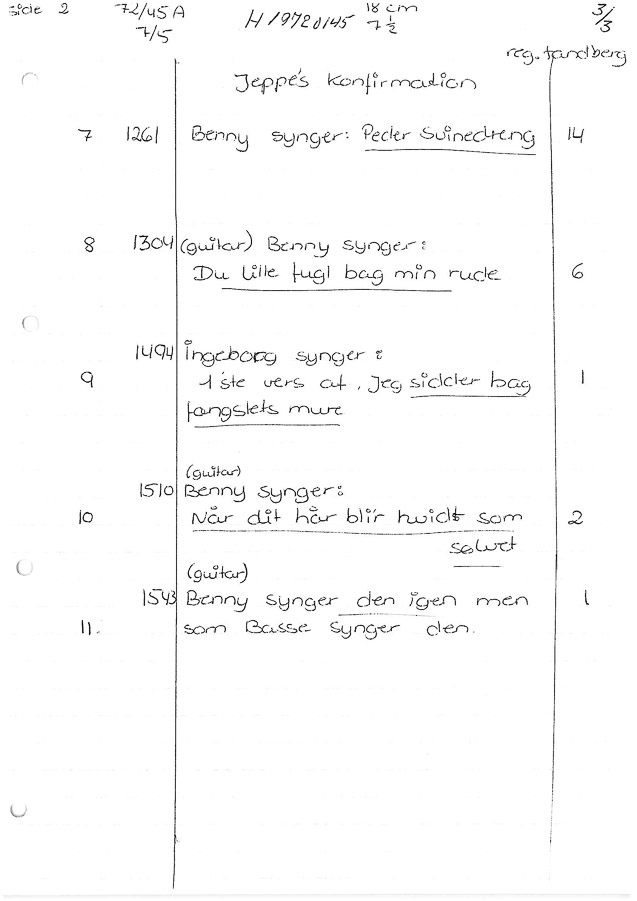 side 2 72/45 A H 19720145 18 cm 3/3
7/5 7 1/2
reg. tandberg
Jeppe's Konfirmation
7 1261 Benny synger: Peder Svinedreng 14
8 1304 (guitar) Benny synger:
Du lille fugl bag min rude 6
1494 Ingeborg synger:
9 1'ste vers af, Jeg sidder bag 1
fængslets mure
(guitar)
1510 Benny synger:
10 Når dit hår blir hvidt som 2
sølvet
(guitar)
1543 Benny synger den igen men 1
11. som Basse synger den.